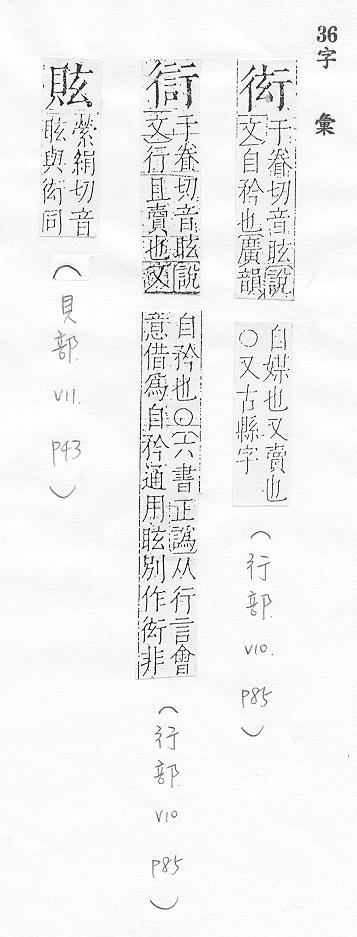 36字彙
衒
于眷切音眩說
文自矜也廣韻
自媒也又賣也
○又古縣字
(行部 V10. P85)
𧗳
于眷切音眩說
文行且賣也又
自矜也○六書正譌从行言會
意借爲自矜通用眩別作衒非
(行部 V10 P85)
䝮
縈絹切音
眩與衒同
(貝部 V11. P43)